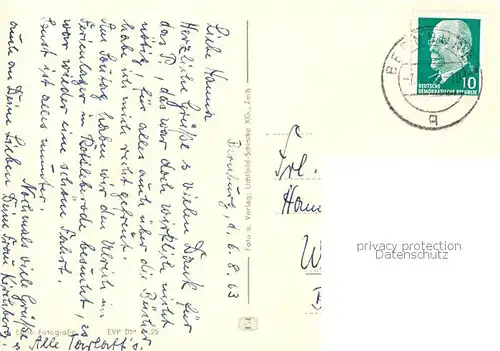 Bernburg, d. 6.8.63
Liebe Hanna
Herzliche Grüße u vielen Dank für
das P., das war doch wirklich nicht
nötig, für alles auch über die Bücher
habe ich mich recht gefreut.
Am Sonntag haben wir den Ulrich im
Ferienlager in Rottleberode besucht, es
war wieder eine schöne Fahrt.
Sonst ist alles munter.
Nochmals viele Grüße
auch an Deine Lieben Deine Frau
u Alle
Echte Fotografie EVP DM
Foto u. Verlag: Lichtbild-Schincke KG., Zeitz
Frl.
DEUTSCHE
DEMOKRATISCHE REPUBLIK
10
privacy protection
Datenschutz